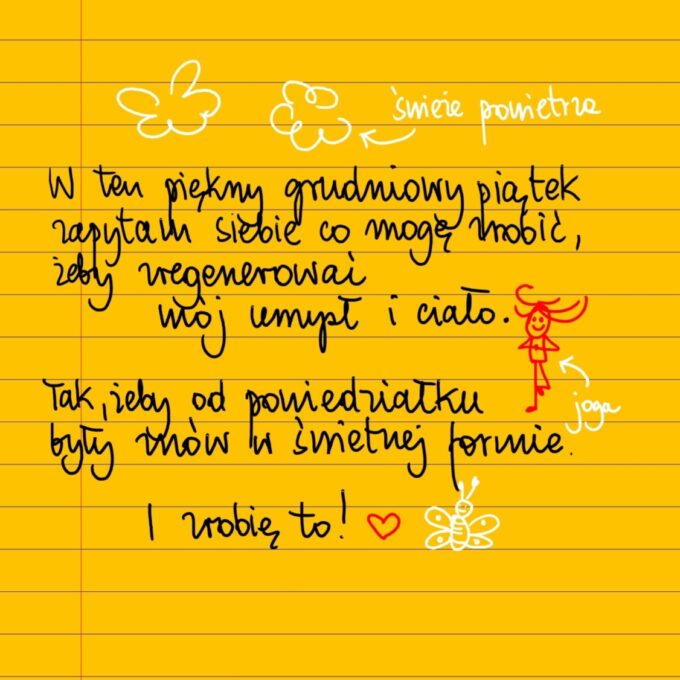 świeże powietrze
W ten piękny grudniowy piątek
zapytam siebie co mogę zrobić,
żeby zregenerować
mój umysł i ciało.
Tak, żeby od poniedziałku
joga
były znów w świetnej formie.
I zrobię to!